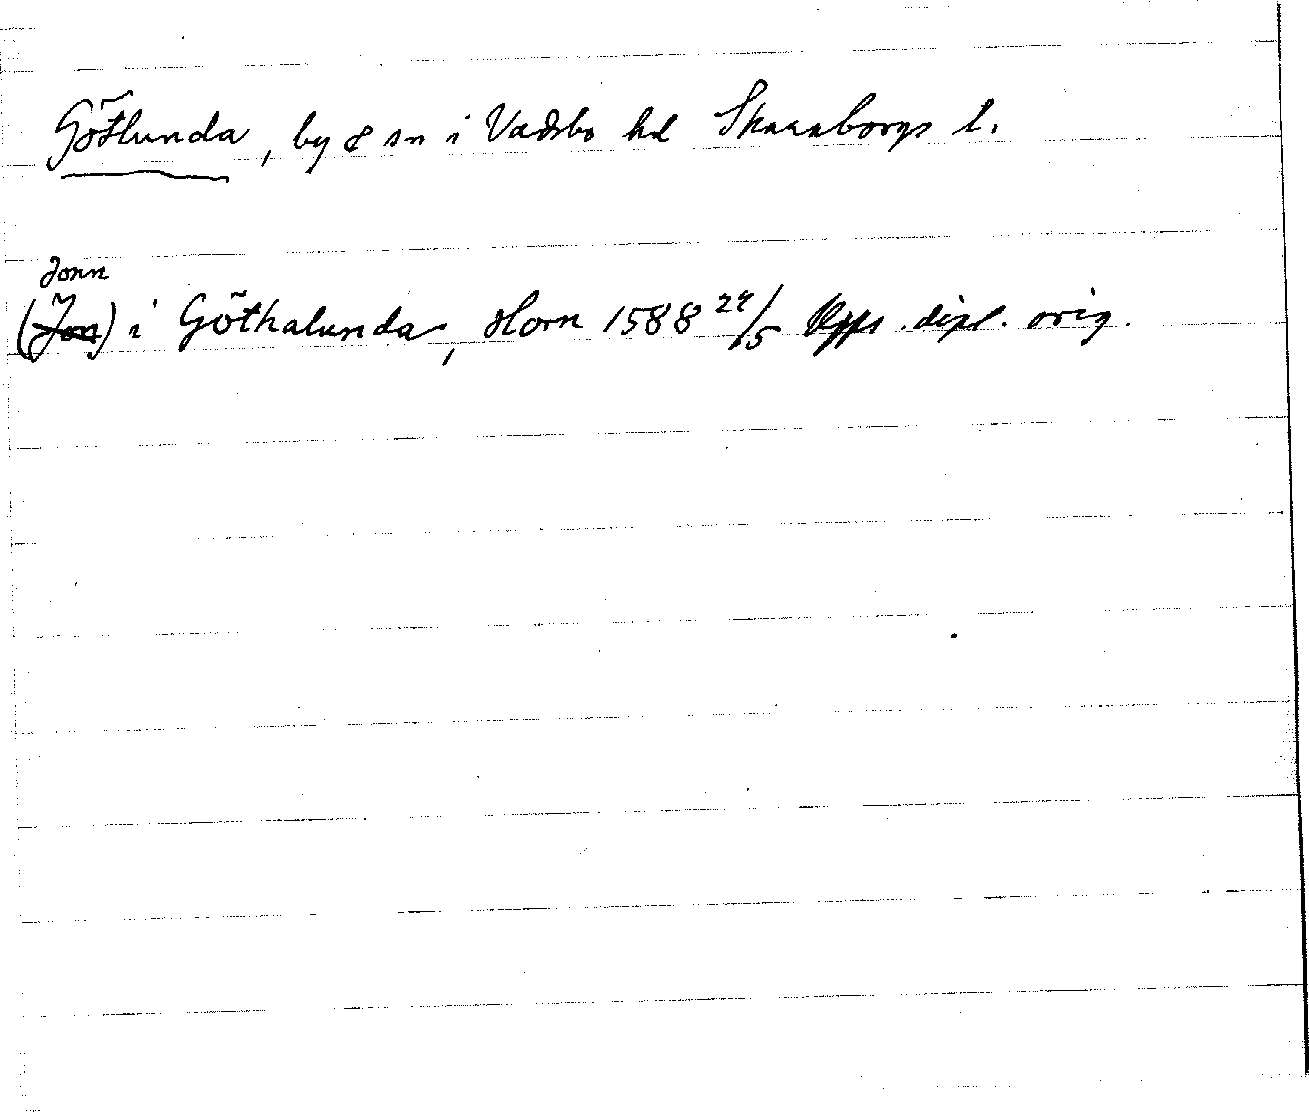 Götlunda, by & sn i Vadsbo hd Skaraborgs l.
Jonn
(Jon) i Göthalunda, Horn 1588 24/5 Upps. dipl. orig.